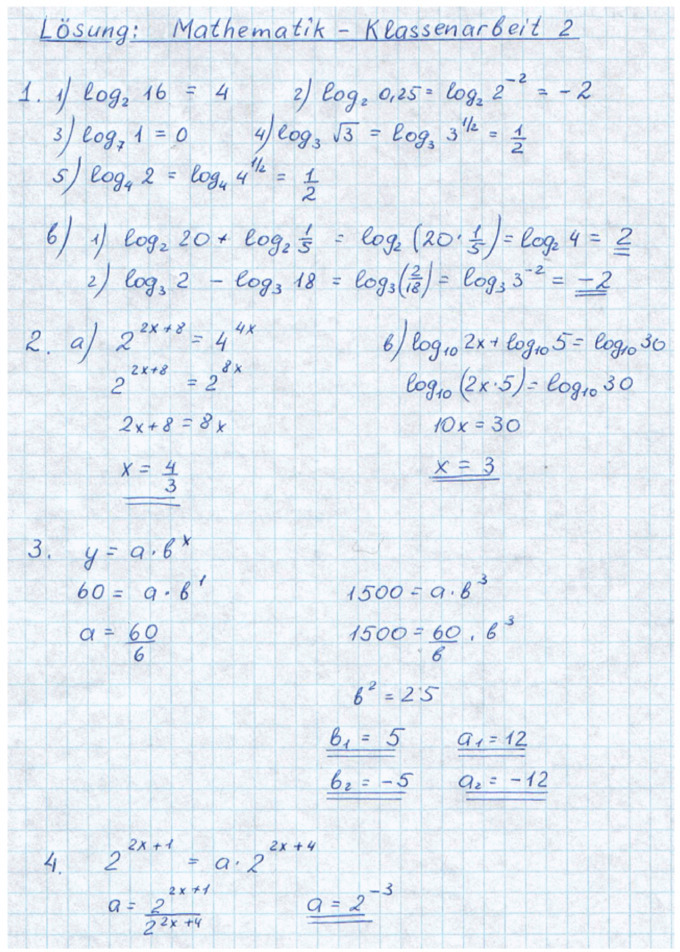 Lösung: Mathematik – Klassenarbeit 2
1. 1) log₂ 16 = 4 2) log₂ 0,25 = log₂ 2⁻² = -2
3) log₇ 1 = 0 4) log₃ √3 = log₃ 3^(1/2) = 1/2
5) log₄ 2 = log₄ 4^(1/2) = 1/2
b) 1) log₂ 20 + log₂ 1/5 = log₂ (20 · 1/5) = log₂ 4 = 2
2) log₃ 2 - log₃ 18 = log₃(2/18) = log₃ 3⁻² = -2
2. a) 2^(2x+8) = 4^(4x) b) log₁₀ 2x + log₁₀ 5 = log₁₀ 30
2^(2x+8) = 2^(8x) log₁₀ (2x·5) = log₁₀ 30
2x+8 = 8x 10x = 30
x = 4/3 x = 3
3. y = a · b^x
60 = a · b¹ 1500 = a · b³
a = 60/b 1500 = 60/b · b³
b² = 25
b₁ = 5 a₁ = 12
b₂ = -5 a₂ = -12
4. 2^(2x+1) = a · 2^(2x+4)
a = 2^(2x+1)/2^(2x+4) a = 2⁻³